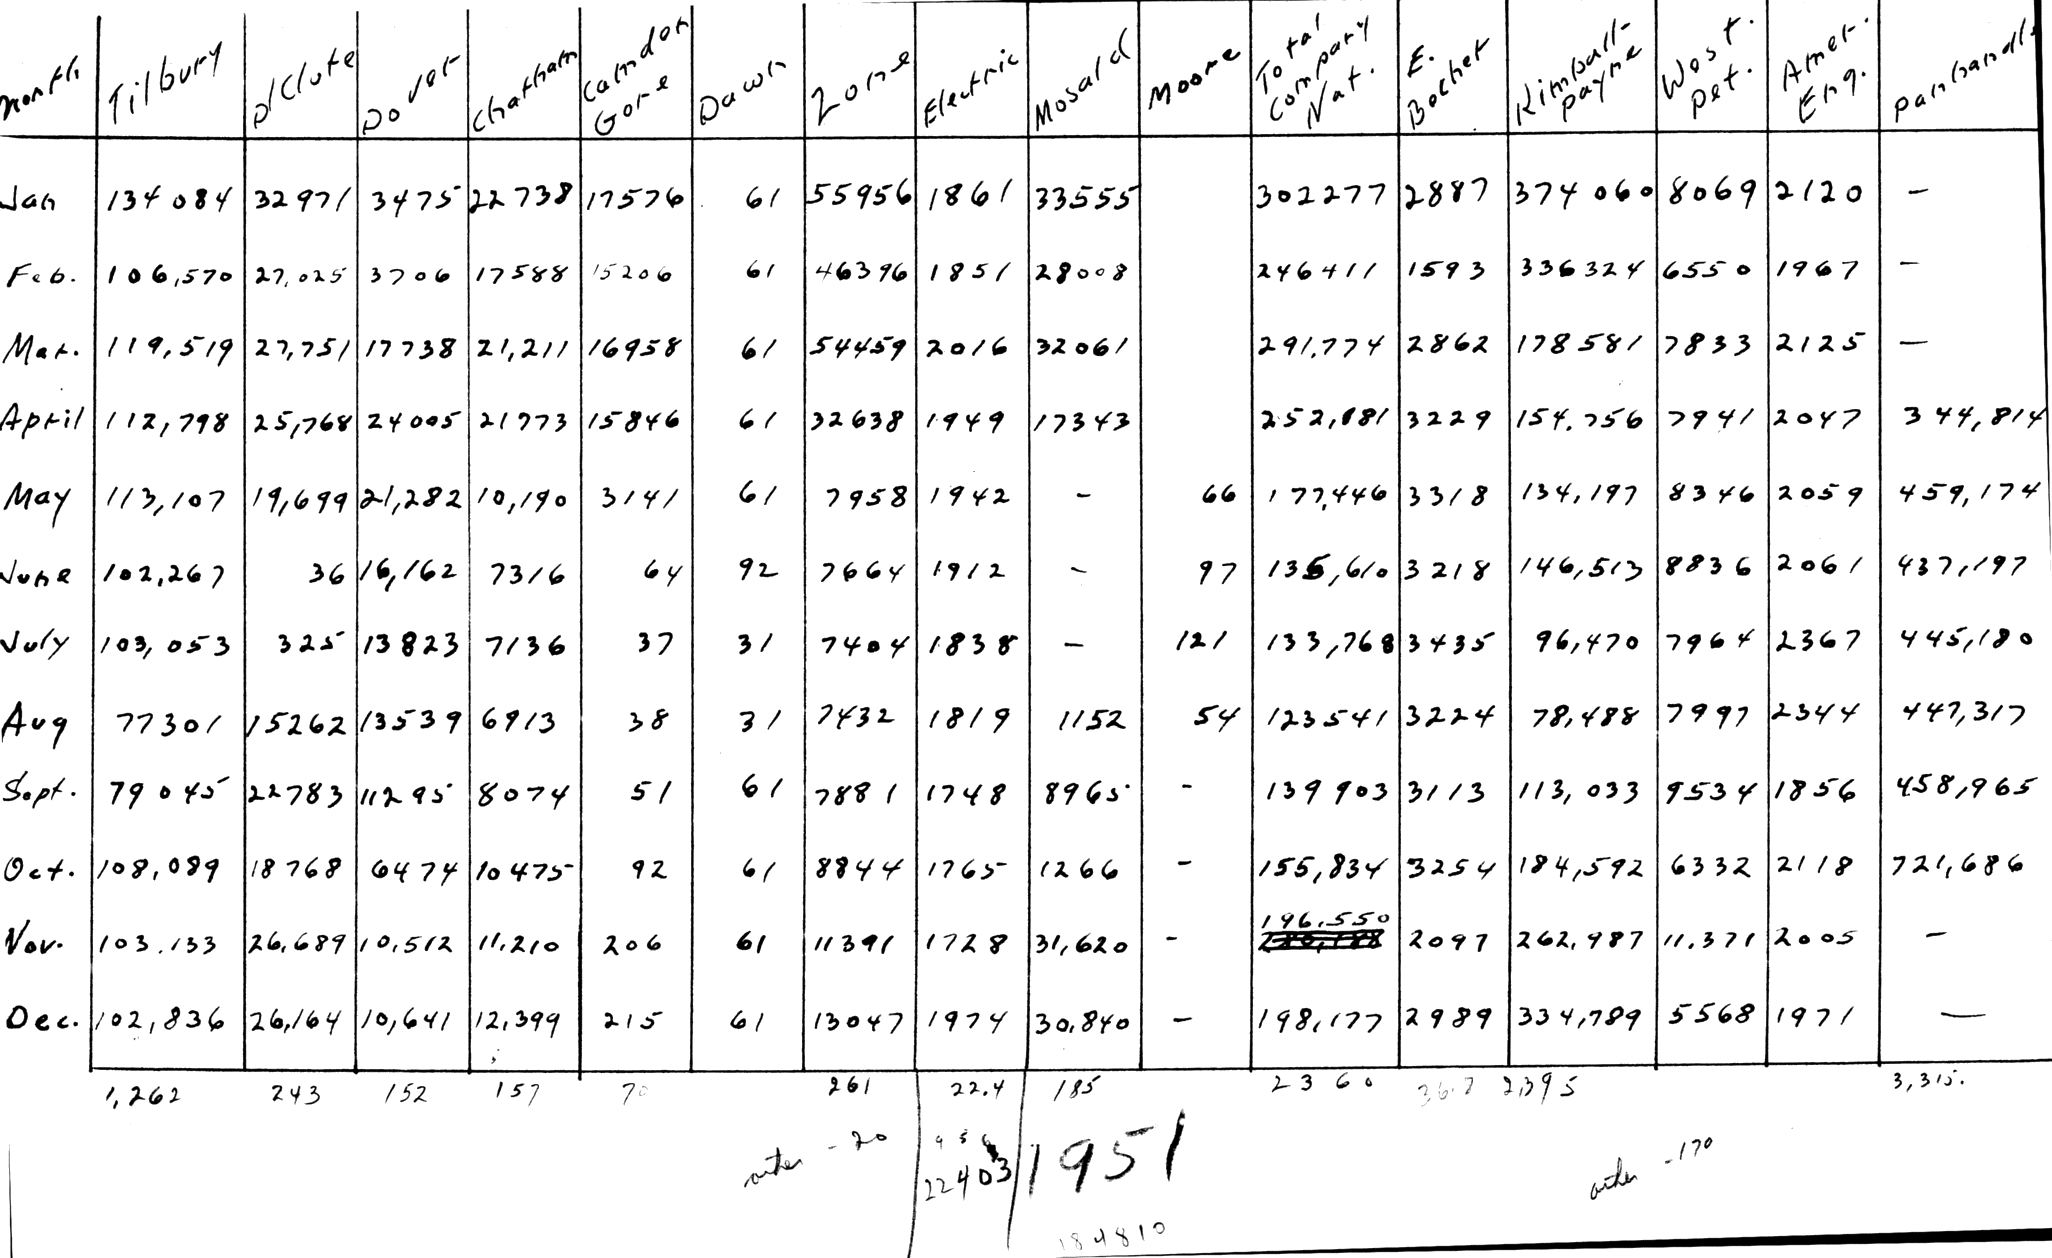 Month Tilbury D'Clute Dover Chatham Camden Gore Dawn Zone Electric Mosald Moore Total Company Nat. E. Bochet Kimball-Payne West. Pet. Amer. Eng. Panhandle
Jan 134084 32971 3475 22738 17576 61 55956 1861 33555 302277 2887 374060 8069 2120 -
Feb. 106,570 27,025 3706 17588 15206 61 46396 1851 28008 246411 1593 336324 6550 1967 -
Mar. 119,519 27,751 17738 21,211 16958 61 54459 2016 32061 291,774 2862 178581 7833 2125 -
April 112,798 25,768 24005 21773 15846 61 32638 1949 17343 252,181 3229 154,756 7941 2047 344,814
May 113,107 19,699 21,282 10,190 3141 61 7958 1942 - 66 177,446 3318 134,197 8346 2059 459,174
June 102,267 36 16,162 7316 64 92 7664 1912 - 97 135,610 3218 146,513 8836 2061 437,197
July 103,053 325 13823 7136 37 31 7404 1838 - 121 133,768 3435 96,470 7964 2367 445,180
Aug 77301 15262 13539 6913 38 31 7432 1819 1152 54 123541 3224 78,488 7997 2344 447,317
Sept. 79045 22783 11295 8074 51 61 7881 1748 8965 - 139903 3113 113,033 9534 1856 458,965
Oct. 108,089 18768 6474 10475 92 61 8844 1765 1266 - 155,834 3254 184,592 6332 2118 721,686
196,550
Nov. 103,133 26,689 10,512 11,210 206 61 11391 1728 31,620 - 2097 262,987 11,371 2005 -
Dec. 102,836 26,164 10,641 12,399 215 61 13047 1974 30,840 - 198,177 2989 334,789 5568 1971 -
1,262 243 152 157 70 261 22.4 185 2360 36.7 2,395 3,315.
other -20
22403
1951
other -170
184810